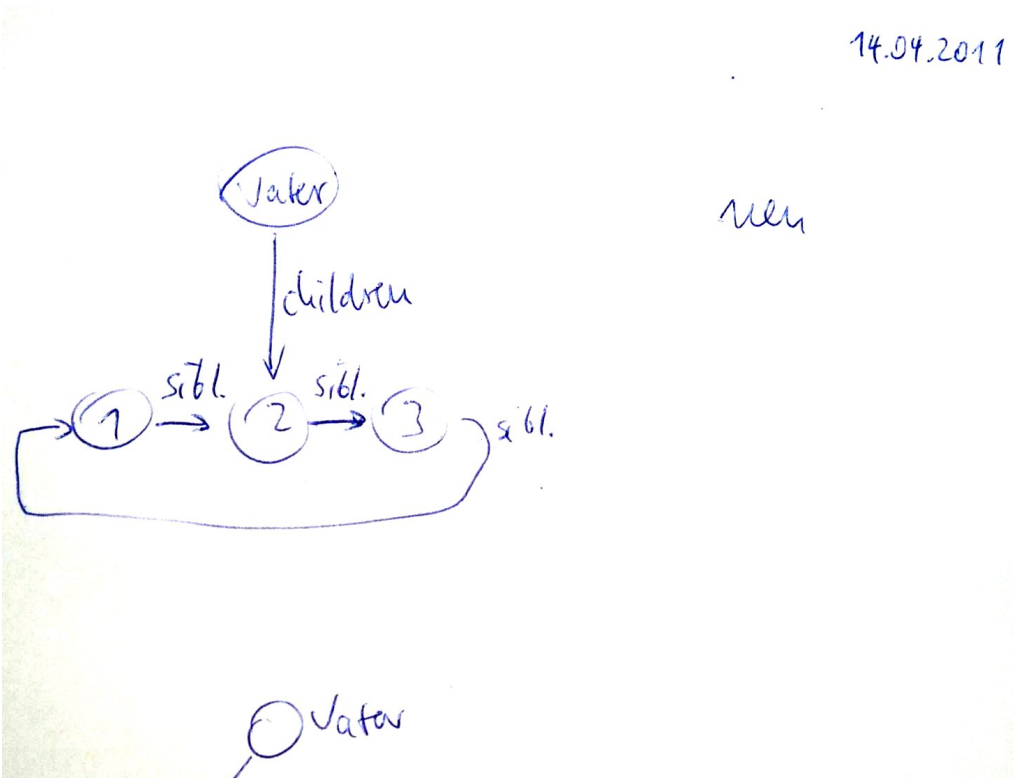 14.04.2011
Vater
neu
children
sibl. sibl.
1 2 3 sibl.
Vater